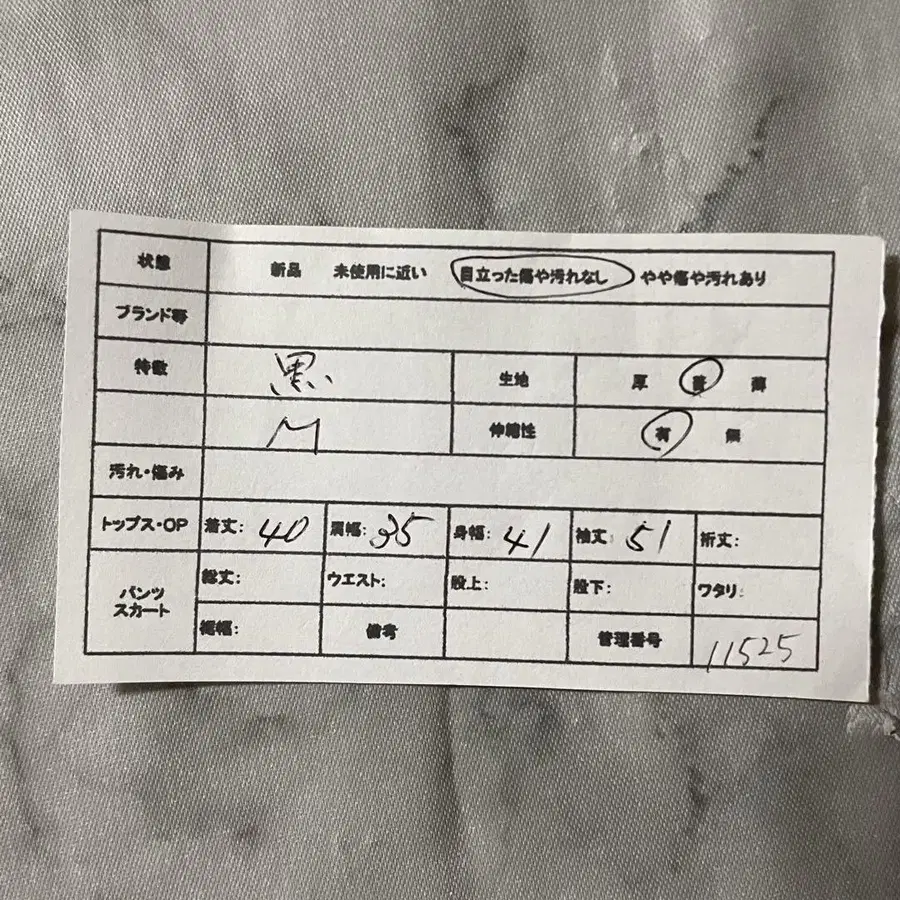 状態 新品 未使用に近い 目立った傷や汚れなし やや傷や汚れあり
ブランド等
特徴 黒 生地 厚 普 薄
M 伸縮性 有 無
汚れ・傷み
トップス・OP 着丈: 40 肩幅: 35 身幅: 41 袖丈: 51 裄丈:
パンツ スカート 総丈: ウエスト: 股上: 股下: ワタリ:
裾幅: 備考 管理番号 11525